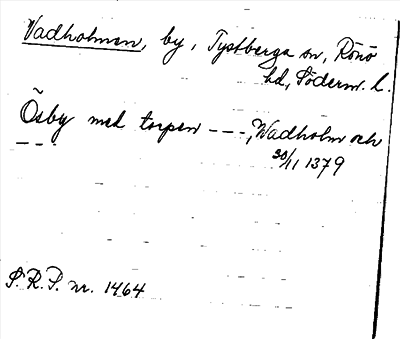 Vadholmen, by, Tystberga sn, Rönö
hd, Söderm. l.
Ösby med torpen ---, Wadholm och
---.
30/11 1379
S.R.P. nr. 1464